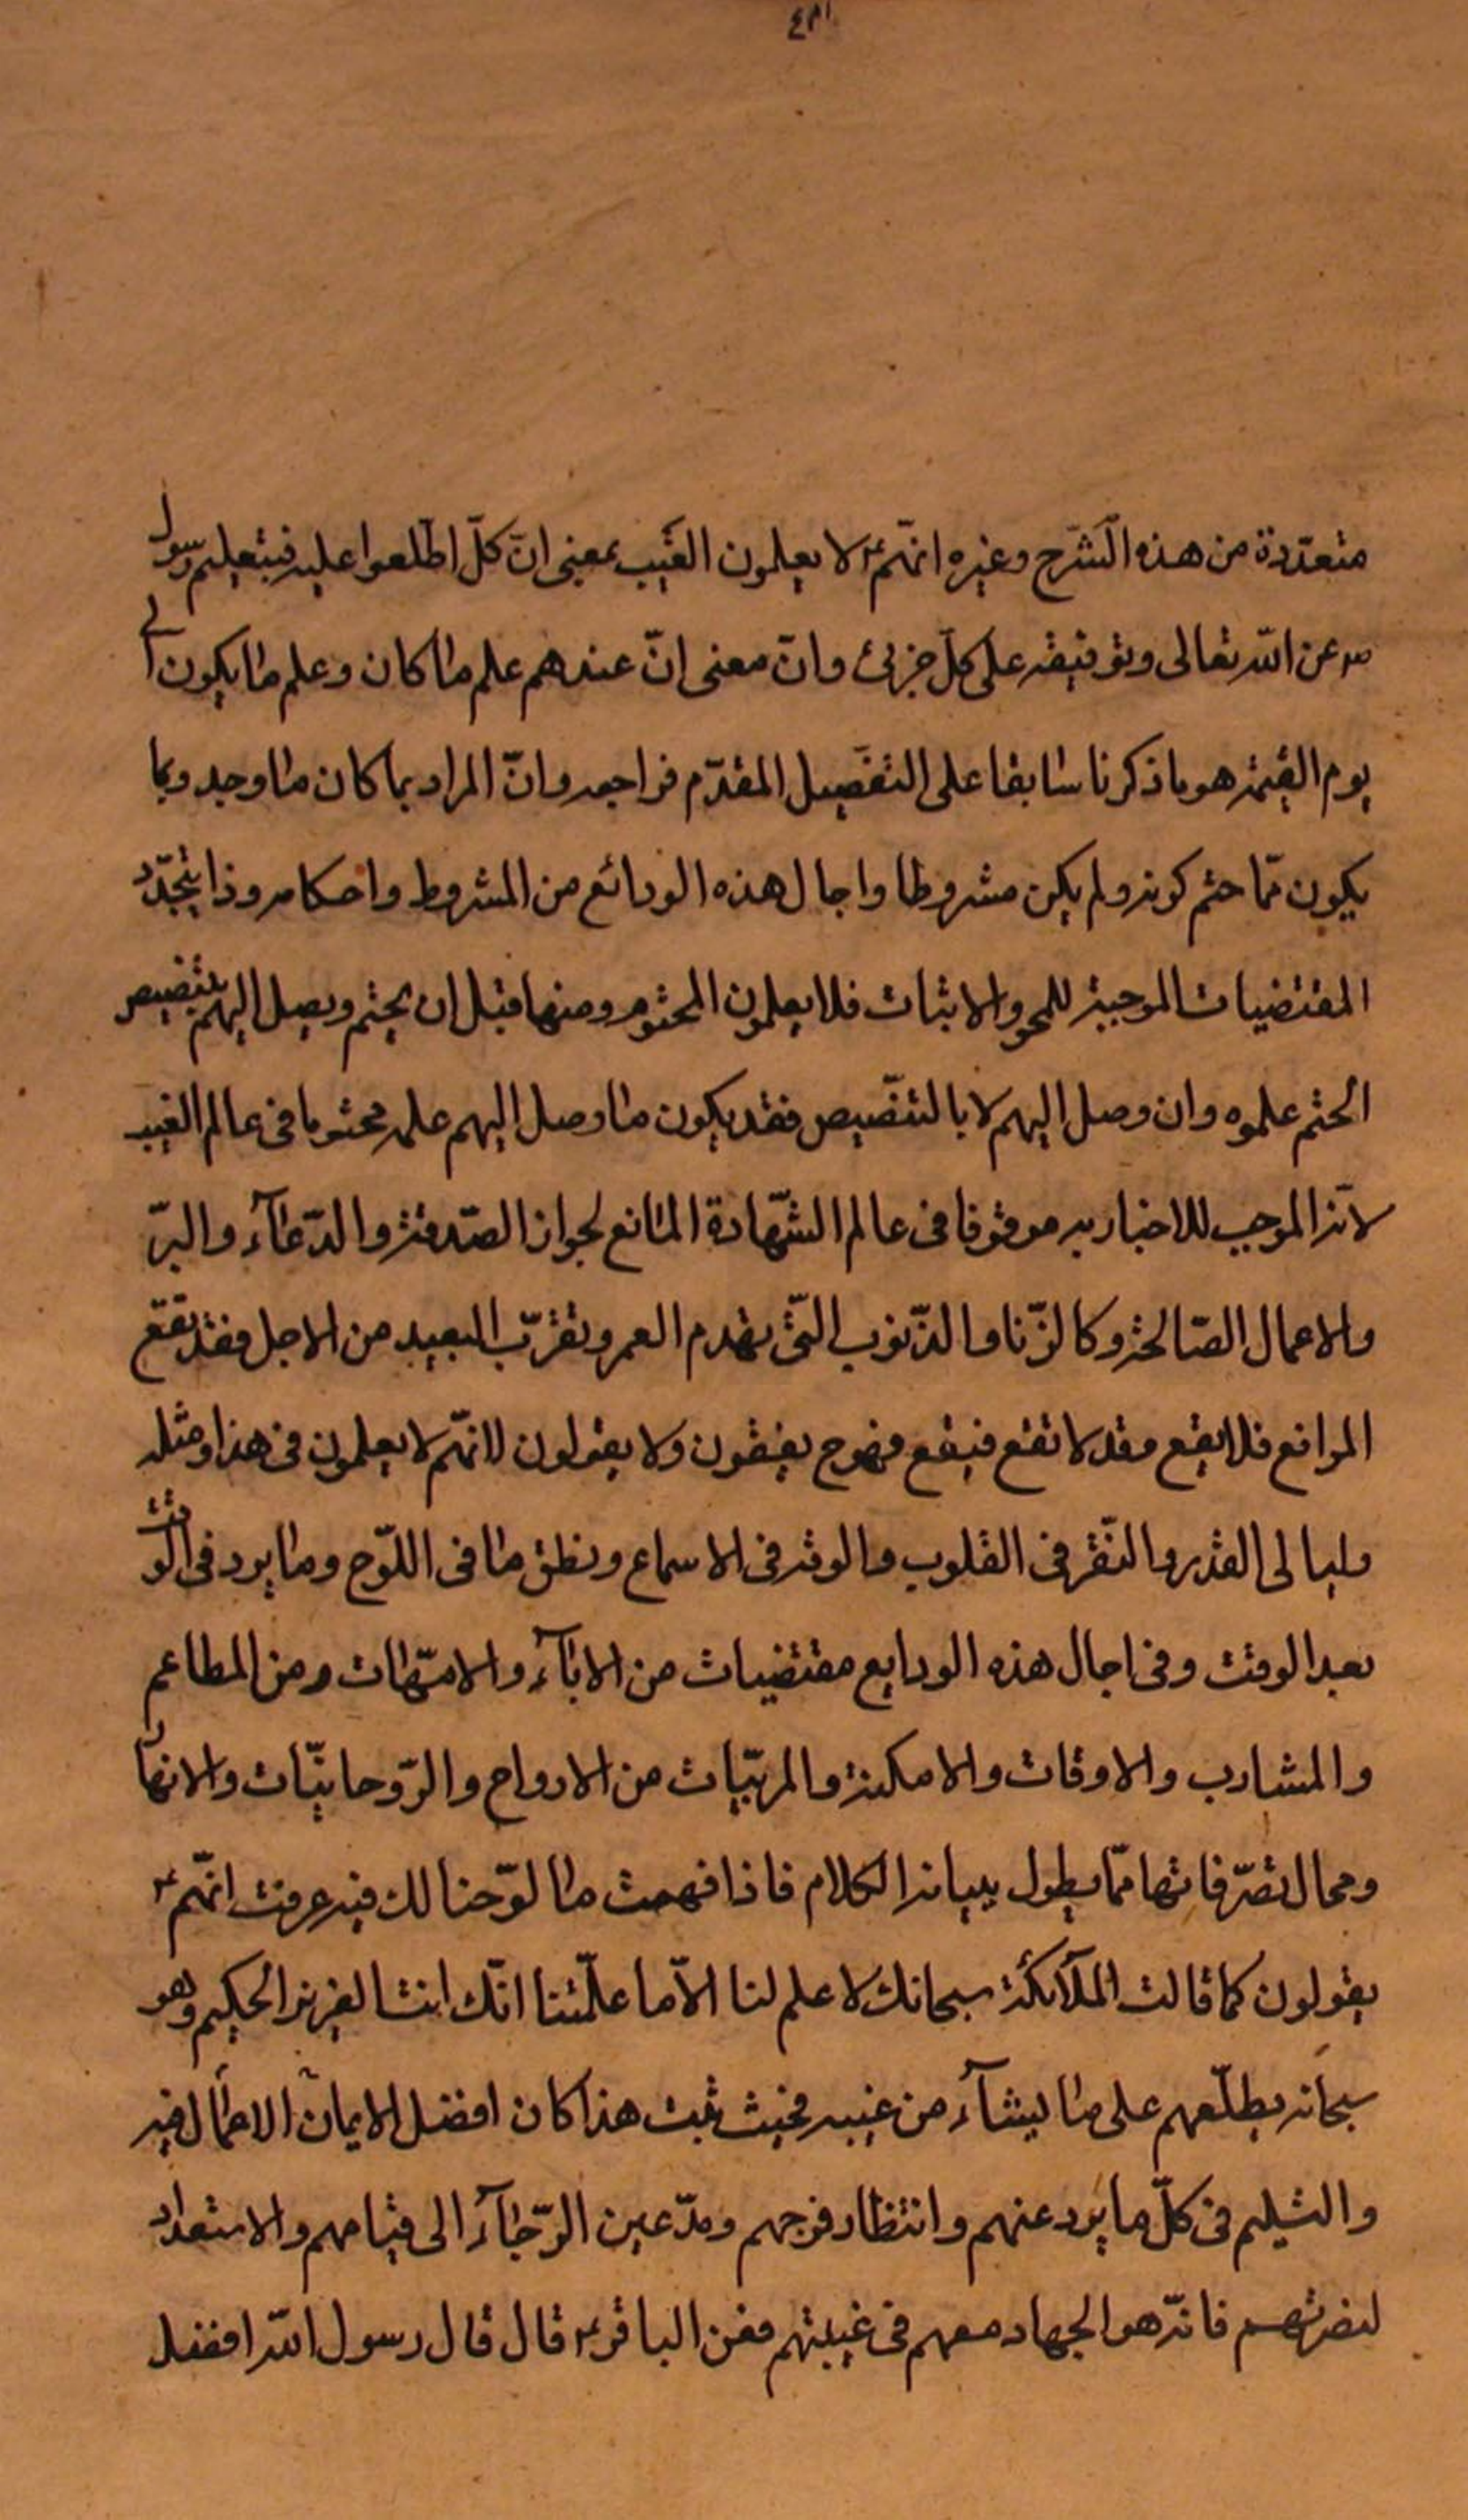 متعدّدة من هذه الشرح وغيره انّهم ع لا يعلمون الغيب بمعنى انّ كلّ اطلعوا عليه فبتعليم رسول
ص عن اللّه تعالى وتوقيفه على كلّ جزئ وانّ معنى انّ عندهم علم ما كان وعلم ما يكون الى
يوم القيمة هو ما ذكرنا سابقا على التفصيل المقدّم فراجعه وانّ المراد بما كان ما وجد وبما
يكون ممّا حتم كونه ولم يكن مشروطا واجال هذه الودائع من المشروط واحكامه وذا يتجدّد
المقتضيات الموجبة للمحو والاثبات فلا يعلمون المحتوم ومنها قبل ان يحتم ويصل اليهم بتنصيص
الحتم علموه وان وصل اليهم لا بالتنصيص فقد يكون ما وصل اليهم علمه محتوما فى عالم الغيب
لانّه الموجب للاخبار به موقوفا فى عالم الشّهادة المانع لجواز الصّدقة والدّعآء والبرّ
والاعمال الصّالحة وكالزّنا والذّنوب الّتى تهدم العمر وتقرّب البعيد من الاجل فقد تقع
الموانع فلا يقع وقد لا تقع فيقع فهم ح يقفون ولا يقولون لانّهم لا يعلمون فى هذا ومثله
وليالى القدر والنّقر فى القلوب والوقر فى الاسماع ونطق ما فى اللّوح وما يرد فى الوقت
بعد الوقت وفى اجال هذه الودايع مقتضيات من الابآء والامّهات ومن المطاعم
والمشارب والاوقات والامكنة والمربّيات من الارواح والرّوحانيّات والانهار
ومحال تصرّفاتها ممّا يطول ببيانه الكلام فاذا فهمت ما لوّحنا لك فيه عرفت انّهم ع
يقولون كما قالت الملآئكة سبحانك لا علم لنا الاّ ما علّمتنا انّك انت العزيز الحكيم وهو
سبحانه يطلّعهم على ما يشآء من غيبه فحيث ثبت هذا كان افضل الايمان الاعمال فيه
والتسليم فى كلّ ما يرد عنهم وانتظار فرجهم ومدّ عين الرّجآء الى قيامهم والاستعداد
لنصرتهم فانّه هو الجهاد معهم فى غيبتهم فعن الباقر ع قال قال رسول اللّه افضل